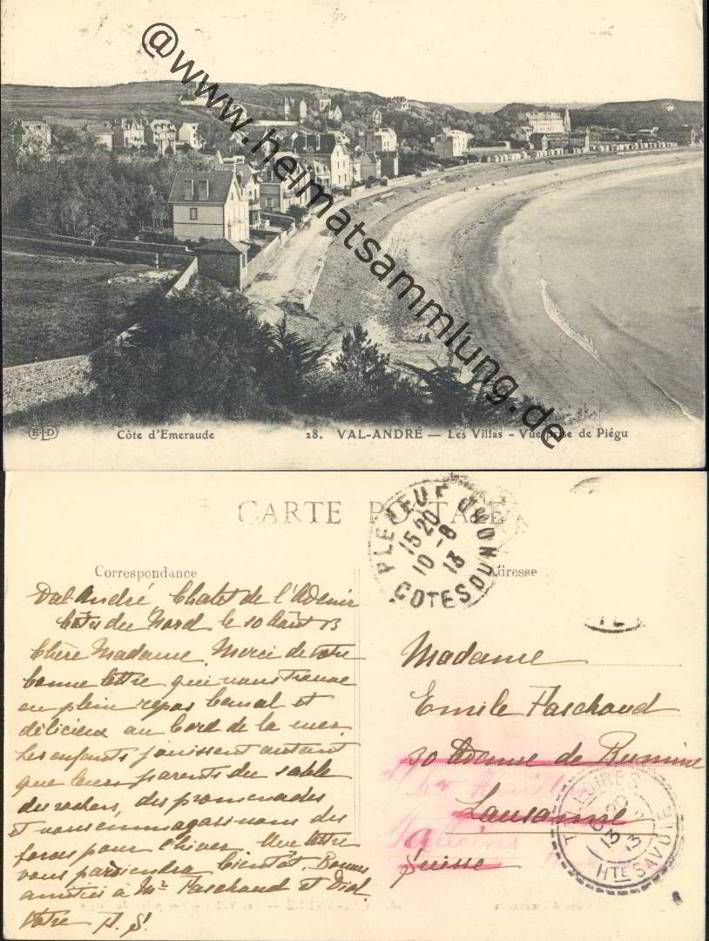 @www.heimatsammlung.de
ELD Côte d'Emeraude 28. VAL-ANDRÉ — Les Villas - Vue prise de Piégu
CARTE POSTALE
Correspondance
Adresse
PLENEUF
15 20
10 - 8
13
COTES DU NORD
Val André Chalet de l'Avenir
Côtes du Nord le 10 Août 13
Chère Madame. Merci de votre
bonne lettre qui nous trouve
en plein repos et
délicieux au bord de la mer.
Les enfants jouissent autant
que leurs parents du sable
des rochers, des promenades
et nous emmagasinons des
forces pour l'hiver. Une lettre
vous parviendra bientôt. Bonnes
amitiés à Mr Paschoud et
Votre
Madame
Emile Paschoud
30 Avenue de Rumine
Lausanne
Suisse
Talloires
TALLOIRES
13
HTE SAVOIE